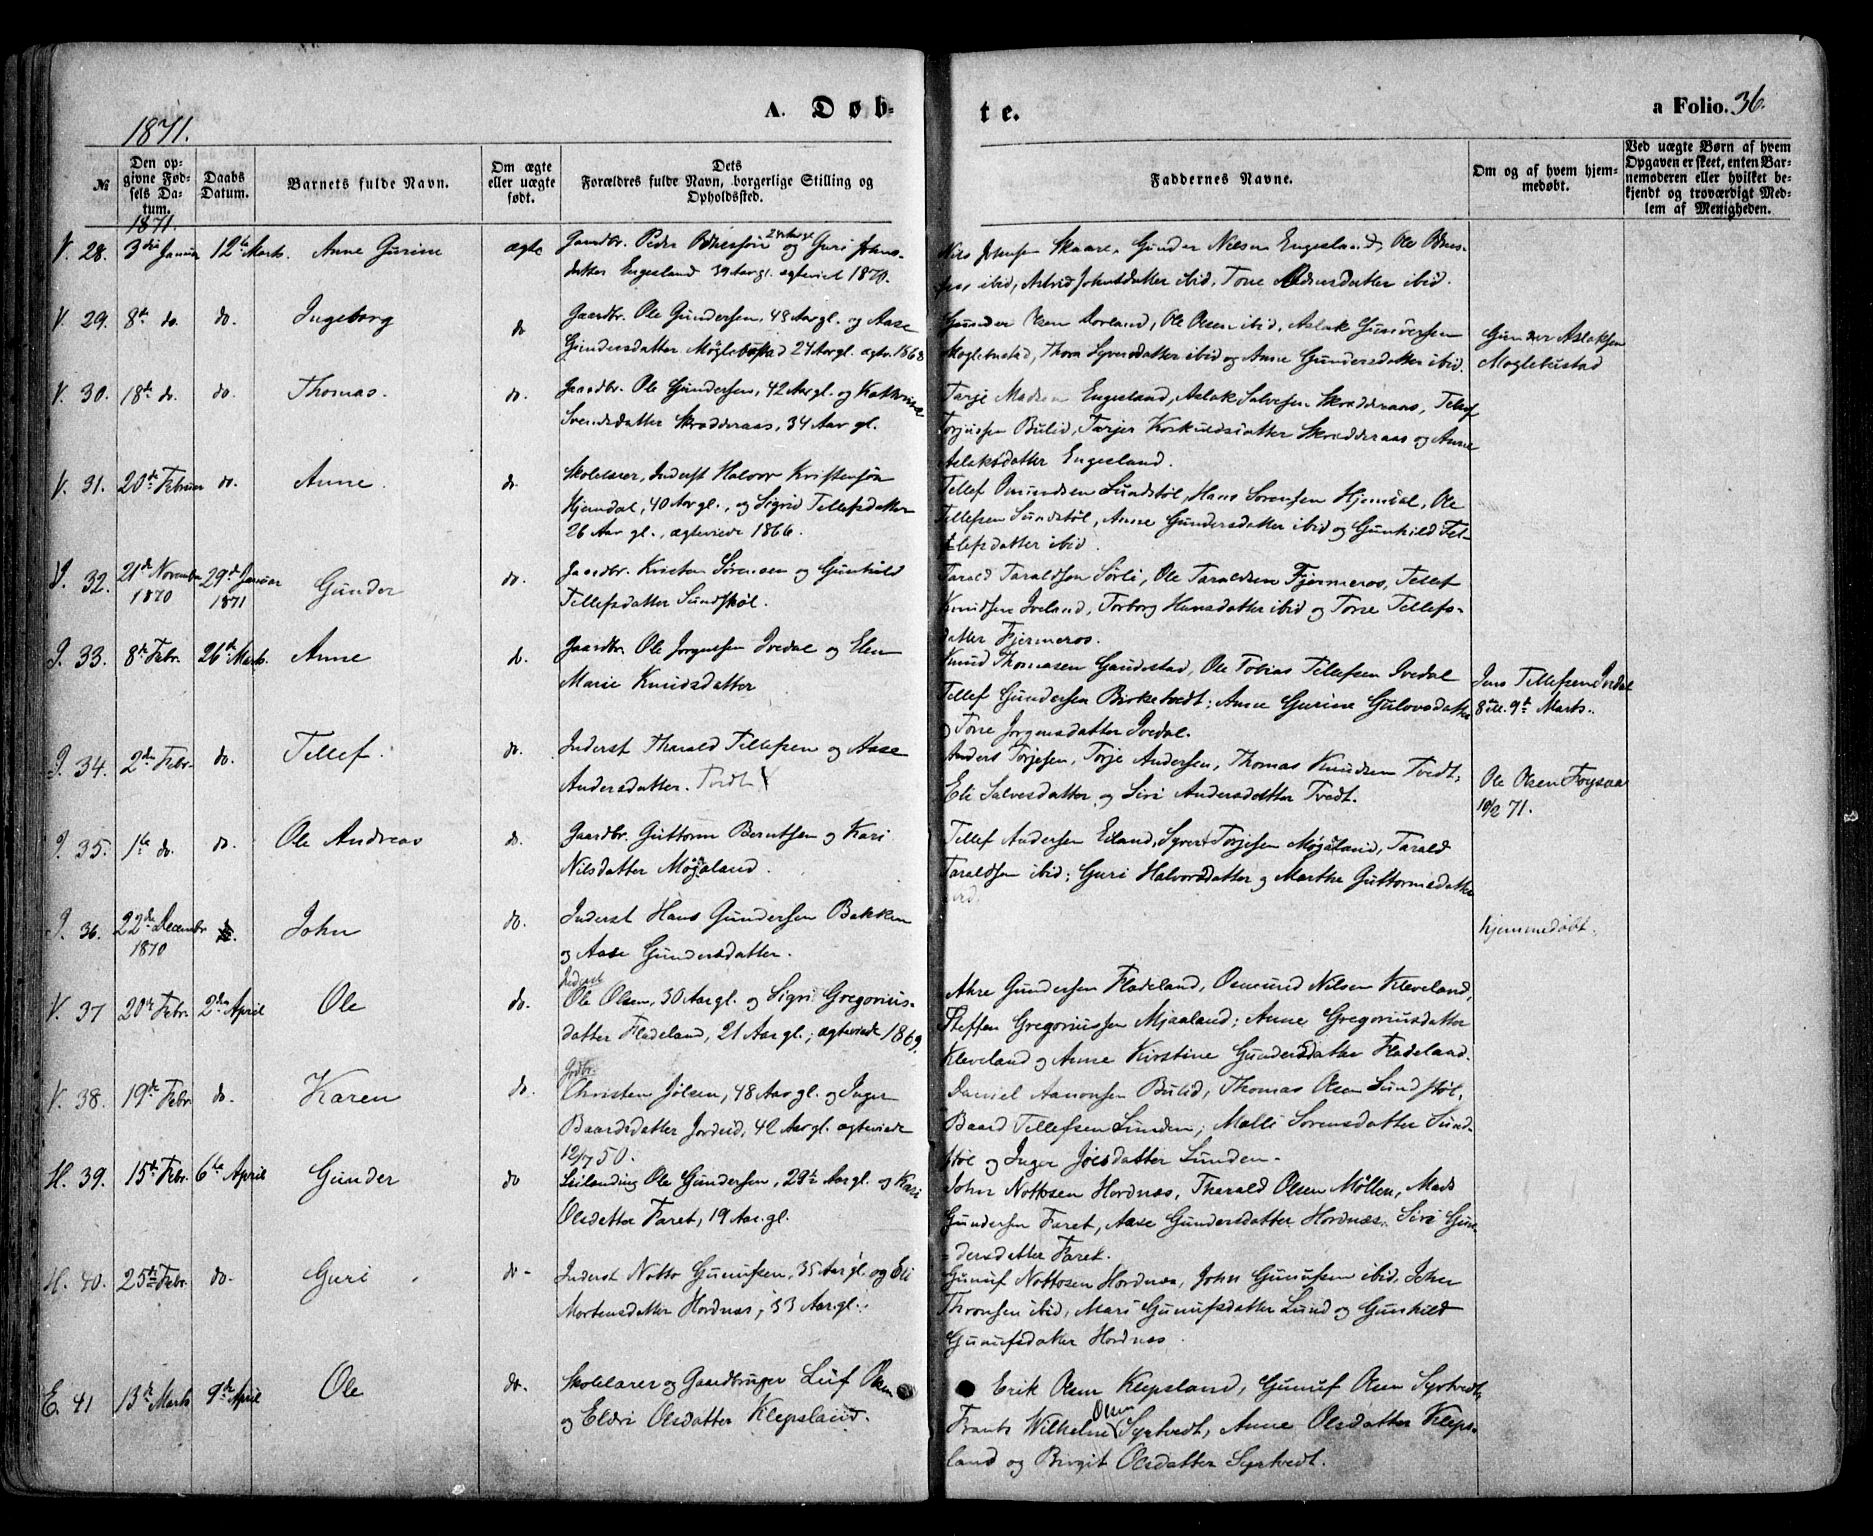 1871.
A. Døb-
te.
a Folio. 36.
№
Den op-
givne Fød-
sels Da-
tum.
Daabs
Datum.
Barnets fulde Navn.
Om ægte
eller uægte
født.
Dets
Forældres fulde Navn, borgerlige Stilling og
Opholdssted.
Faddernes Navne.
Om og af hvem hjem-
medøbt.
Ved uægte Børn af hvem
Opgaven er skeet, enten Bar-
nemoderen eller hvilket be-
kjendt og troværdigt Med-
lem af Menigheden.
1871.
V. 28. 3die Januar 12te Marts. Anne Gurine ægte
Gaardbr. Peder og Guri Johns-
datter Engesland 39 Aar gl. egteviet 1870.
Nils Johnsen Skaare, Gunder Nilsen Engesland, Ole
ibid, Astrid Johnsdatter ibid, Tone ibid.
V. 29. 8de do. do. Ingeborg do
Gaardbr. Ole Gundersen, 48 Aar gl. og Aase
Gundersdatter Møglebustad 24 Aar gl. egtv. 1868
Gunder Olsen Dorland, Ole Olsen ibid, Aslak Gundersen
Møglebustad, Thora Syversdatter ibid og Anne Gundersdatter ibid.
Gunder Aslaksen
Moglebustad
V. 30. 18de do. do. Thomas. do.
Gaardbr. Ole Gundersen, 42 Aar gl. og Kathrine
Svendsdatter Skrædderaas, 34 Aar gl.
Tarje Madsen Engesland, Aslak Salvesen Skrædderaas, Tellef
Torjussen Bulid, Tarjer Skrædderaas og Anne
Aslaksdatter Engesland.
V. 31. 20de Februar do. Anne. do.
Skolelærer, Inderst Halvor Kristensøn
Hjemdal, 40 Aar gl., og Sigrid Tellefsdatter
26 Aar gl., ægteviede 1866.
Tellef Omundsen Sundstøl, Hans Sorensen Hjemdal, Ole
Tellefsen Sundstøl, Anne Gundersdatter ibid og Gunhild Tel-
lefsdatter ibid.
I. 32. 21de November 1870 29de Januar 1871 Gunder do.
Gaardbr. Kristen Sørensen og Gunhild
Tellefsdatter Sundstøl.
Tarald Taraldsen Sörli, Ole Taraldsen Fjermeros, Tellef
Knudsen Iveland, Torborg Hansdatter ibid og Tone Tellefs-
datter Fjermeros.
I. 33. 8de Febr. 26de Marts. Anne do.
Gaardbr. Ole Jorgensen Ivedal og Elen
Marie Knudsdatter
Knud Thomasen Gaudestad, Ole Tobias Tellefsen Ivedal
Tellef Gundersen Birketvedt; Anne Gurine Gulovsdatter
og Tone Jorgensdatter Ivedal.
Jens Tellefsen Ivedal
9de Marts.
I. 34. 2den Febr. do. Tellef. do.
Inderst Tharald Tellefsen og Aase
Andersdatter. Tvedt
Anders Torjesen, Torje Andersen, Thomas Knudsen Tvedt,
Eli Salvesdatter og Siri Andersdatter Tvedt.
Ole Olsen Frøysaa
10/2 71.
I. 35. 1ste do. do. Ole Andreas do.
Gaardbr. Guttorm Berntsen og Kari
Nilsdatter Møgaland.
Tellef Andersen Eiland, Syvert Torjesen Møgaland, Tarald
Taraldsen ibid; Guri Halvorsdatter og Marthe Guttormsdatter
ibid.
I. 36. 22de Decembr 1870 do. John do.
Inderst Hans Gundersen Bakken
og Aase Gundersdatter.
hjemmedøbt.
V. 37 20de Febr. 2den April Ole do.
Inderst
Ole Olsen, 30 Aar gl. og Sigri Gregorius-
datter Fladeland, 21 Aar gl.; ægteviede 1869.
Akre Gundersen Fladeland, Osmund Nilsen Kleveland,
Steffen Gregoriussen Mjaaland; Anne Gregoriusdatter
Kleveland og Anne Kirstine Gundersdatter Fladeland.
V. 38. 19de Febr do. Karen do.
Grdbr.
Christen Jölsen, 48 Aar gl. og Inger
Baardsdatter Jordrid, 42 Aar gl. egteviede
12/7 50.
Daniel Aanonsen Bulid, Thomas Olsen Sundstøl,
Baard Tellefsen Lunden; Malli Sorensdatter Sund-
støl og Inger Joelsdatter Lunden.
H. 39. 15de Febr. 6te April Gunder do
Leilænding Ole Gundersen, 29½ Aar gl. og Kari
Olsdatter Faret, 19 Aar gl.
John Nottosen Hordnæs, Tharald Olsen Möllen, Mads
Gundersen Faret, Aase Gundersdatter Hordnæs, Siri Gun-
dersdatter Faret.
H. 40. 25de Febr. do. Guri do.
Inderst Notto Gunufsen, 35 Aar gl. og Eli
Mortensdatter Hordnæs, 33 Aar gl.
Gunuf Nottosen Hordnæs, John Gunufsen ibid, John
Thronsen ibid, Mari Gunufsdatter Lund og Gunhild
Gunufsdatter Hordnæs.
E. 41 13de Marts 9de April Ole do.
Skolelærer og Gaardbruger Leif Olsen
og Eldri Olsdatter Klepsland.
Erik Olsen Klepsland, Gunuf Olsen Syrtvedt,
Frants Wilhelm Olsen Syrtvedt, Anne Olsdatter Kleps-
land og Birgit Olsdatter Syrtvedt.